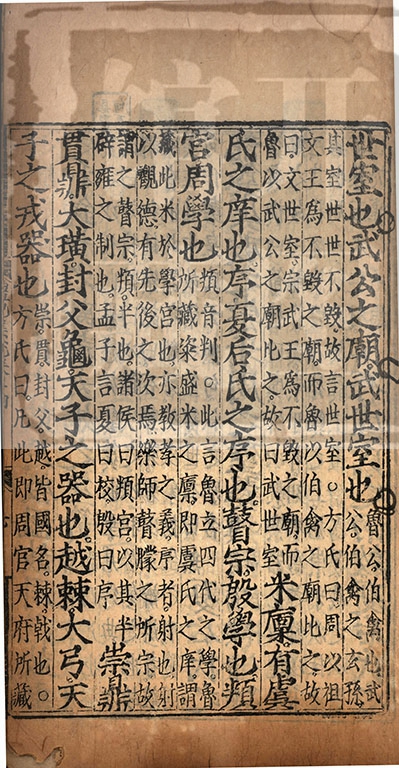 世室也。武公之廟。武世室也。魯公伯禽也。武
公伯禽之玄孫。
其室世世不毀。故言世室。○方氏曰。周以祖
文王為不毀之廟。而魯以伯禽之廟比之。故
曰文世室。宗武王為不毀之廟。而
魯以武公之廟比之。故曰武世室米廩。有虞
氏之庠也。序。夏后氏之序也。瞽宗。殷學也。頖
宮。周學也。頖音判。○此言魯立四代之學。魯
所藏粢盛米之廩。即虞氏之庠。謂
藏此米於學宮也。亦教孝之義。序者。射也。射
以觀德。有先後之次焉。樂師瞽矇之所宗。故
謂之瞽宗。頖。半也。諸侯曰頖宮。以其半
辟雍之制也。孟子言夏曰校。殷曰序崇鼎
貫鼎。大璜。封父龜。天子之器也。越棘。大弓。天
子之戎器也。崇。貫。封父。越。皆國名。棘。戟也。○
方氏曰。凡此即周官天府所藏